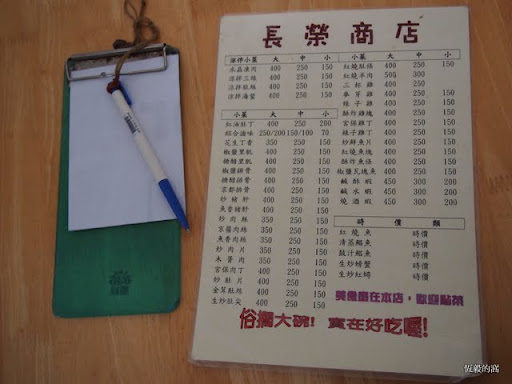 長榮商店
涼拌小菜 大 中 小
水晶凍肉 400 250 150
涼拌三絲 400 250 150
涼拌肚絲 400 250 150
涼拌海蜇 400 250 150
小菜 大 中 小
紅油肚丁 400 250 200
綜合滷味 250/200 150/100 70
花生丁香 350 250 150
椒鹽里肌 400 250 150
糖醋里肌 400 250 150
椒鹽排骨 400 250 150
糖醋排骨 400 250 150
京都排骨 400 250 150
炒豬肝 400 250 150
魚香豬肝 400 250 150
炒肉絲 350 250 150
京醬肉絲 400 250 150
魚香肉絲 400 250 150
炒肉片 350 250 150
木須肉 350 250 150
宮保肉丁 400 250 150
炒肚片 400 250 150
金茸肚絲 400 250 150
生炒肚尖 400 250 150
小菜 大 中 小
紅燒肚條 400 250 150
紅燒羊肉 500 300
三杯雞 400 250
麥芽雞 400 250 150
辣子雞 400 250 150
酥炸雞塊 400 250 150
宮保雞丁 400 250 150
辣子雞丁 400 250 150
炒鮮魚片 400 250 150
紅燒魚塊 400 250 150
酥炸魚條 400 250 150
椒鹽瓦塊魚 400 250 150
鹹酥蝦 450 300 200
鹹水蝦 450 300 200
燒酒蝦 450 300 200
時價類
紅燒魚 時價
清蒸鱸魚 時價
豉汁鱸魚 時價
生炒螃蟹 時價
生炒紅蟳 時價
美食盡在本店，歡迎點菜
俗擱大碗! 實在好吃喔!
恆毅的窩